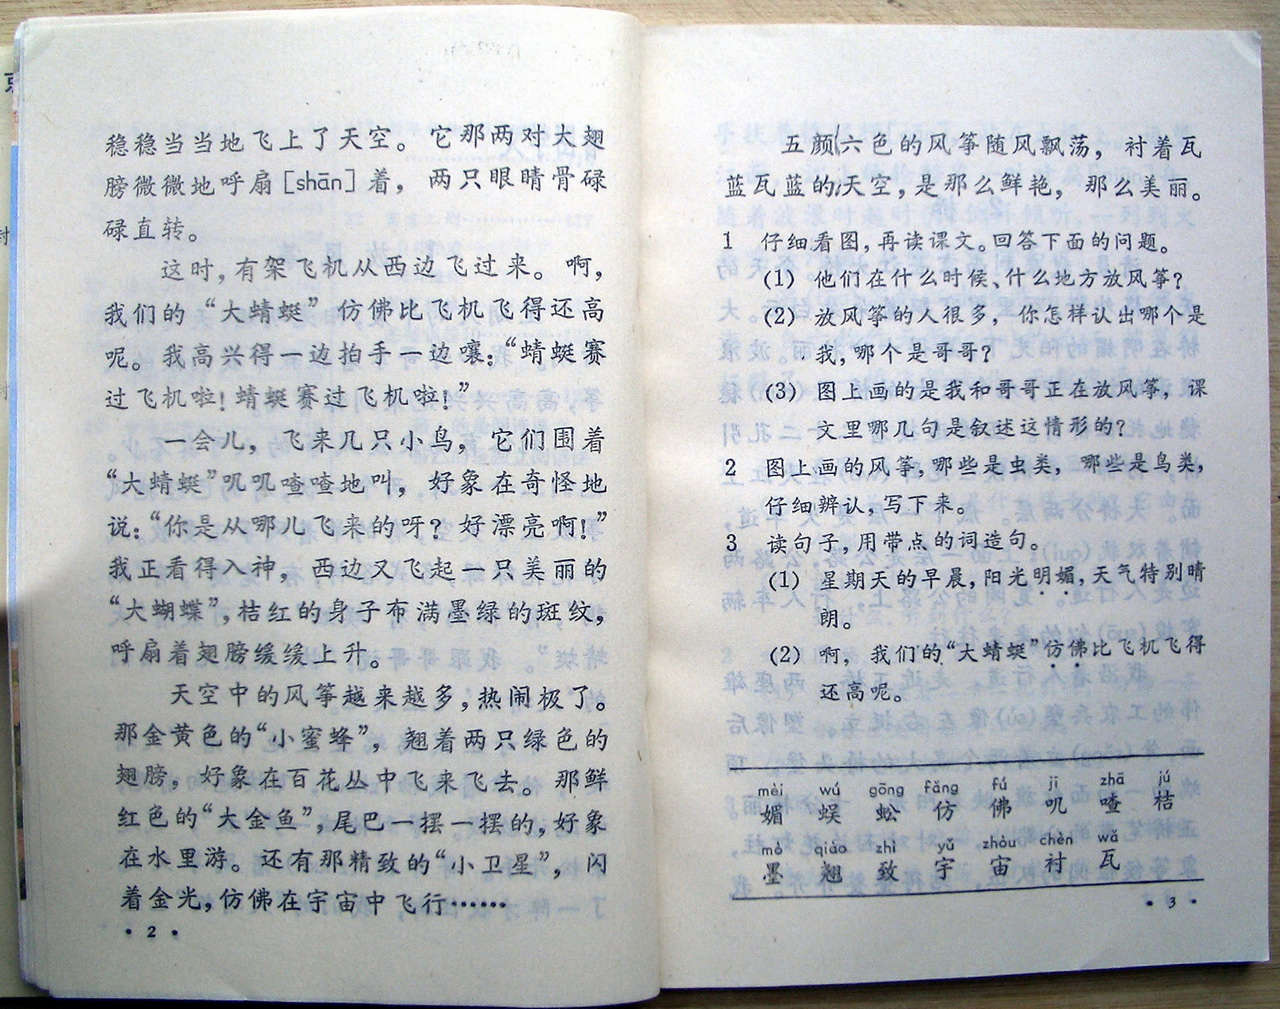 稳稳当当地飞上了天空。它那两对大翅
膀微微地呼扇[shān]着，两只眼睛骨碌
碌直转。
这时，有架飞机从西边飞过来。啊，
我们的“大蜻蜓”仿佛比飞机飞得还高
呢。我高兴得一边拍手一边嚷：“蜻蜓赛
过飞机啦！蜻蜓赛过飞机啦！”
一会儿，飞来几只小鸟，它们围着
“大蜻蜓”叽叽喳喳地叫，好象在奇怪地
说：“你是从哪儿飞来的呀？好漂亮啊！”
我正看得入神，西边又飞起一只美丽的
“大蝴蝶”，桔红的身子布满墨绿的斑纹，
呼扇着翅膀缓缓上升。
天空中的风筝越来越多，热闹极了。
那金黄色的“小蜜蜂”，翘着两只绿色的
翅膀，好象在百花丛中飞来飞去。那鲜
红色的“大金鱼”，尾巴一摆一摆的，好象
在水里游。还有那精致的“小卫星”，闪
着金光，仿佛在宇宙中飞行……
• 2 •
五颜六色的风筝随风飘荡，衬着瓦
蓝瓦蓝的天空，是那么鲜艳，那么美丽。
1 仔细看图，再读课文。回答下面的问题。
(1) 他们在什么时候、什么地方放风筝？
(2) 放风筝的人很多，你怎样认出哪个是
我，哪个是哥哥？
(3) 图上画的是我和哥哥正在放风筝，课
文里哪几句是叙述这情形的？
2 图上画的风筝，哪些是虫类，哪些是鸟类，
仔细辨认，写下来。
3 读句子，用带点的词造句。
(1) 星期天的早晨，阳光明媚，天气特别晴
朗。
(2) 啊，我们的“大蜻蜓”仿佛比飞机飞得
还高呢。
mèi wú gōng fǎng fú jī zhā jú
媚 蜈 蚣 仿 佛 叽 喳 桔
mò qiào zhì yǔ zhòu chèn wǎ
墨 翘 致 宇 宙 衬 瓦
• 3 •